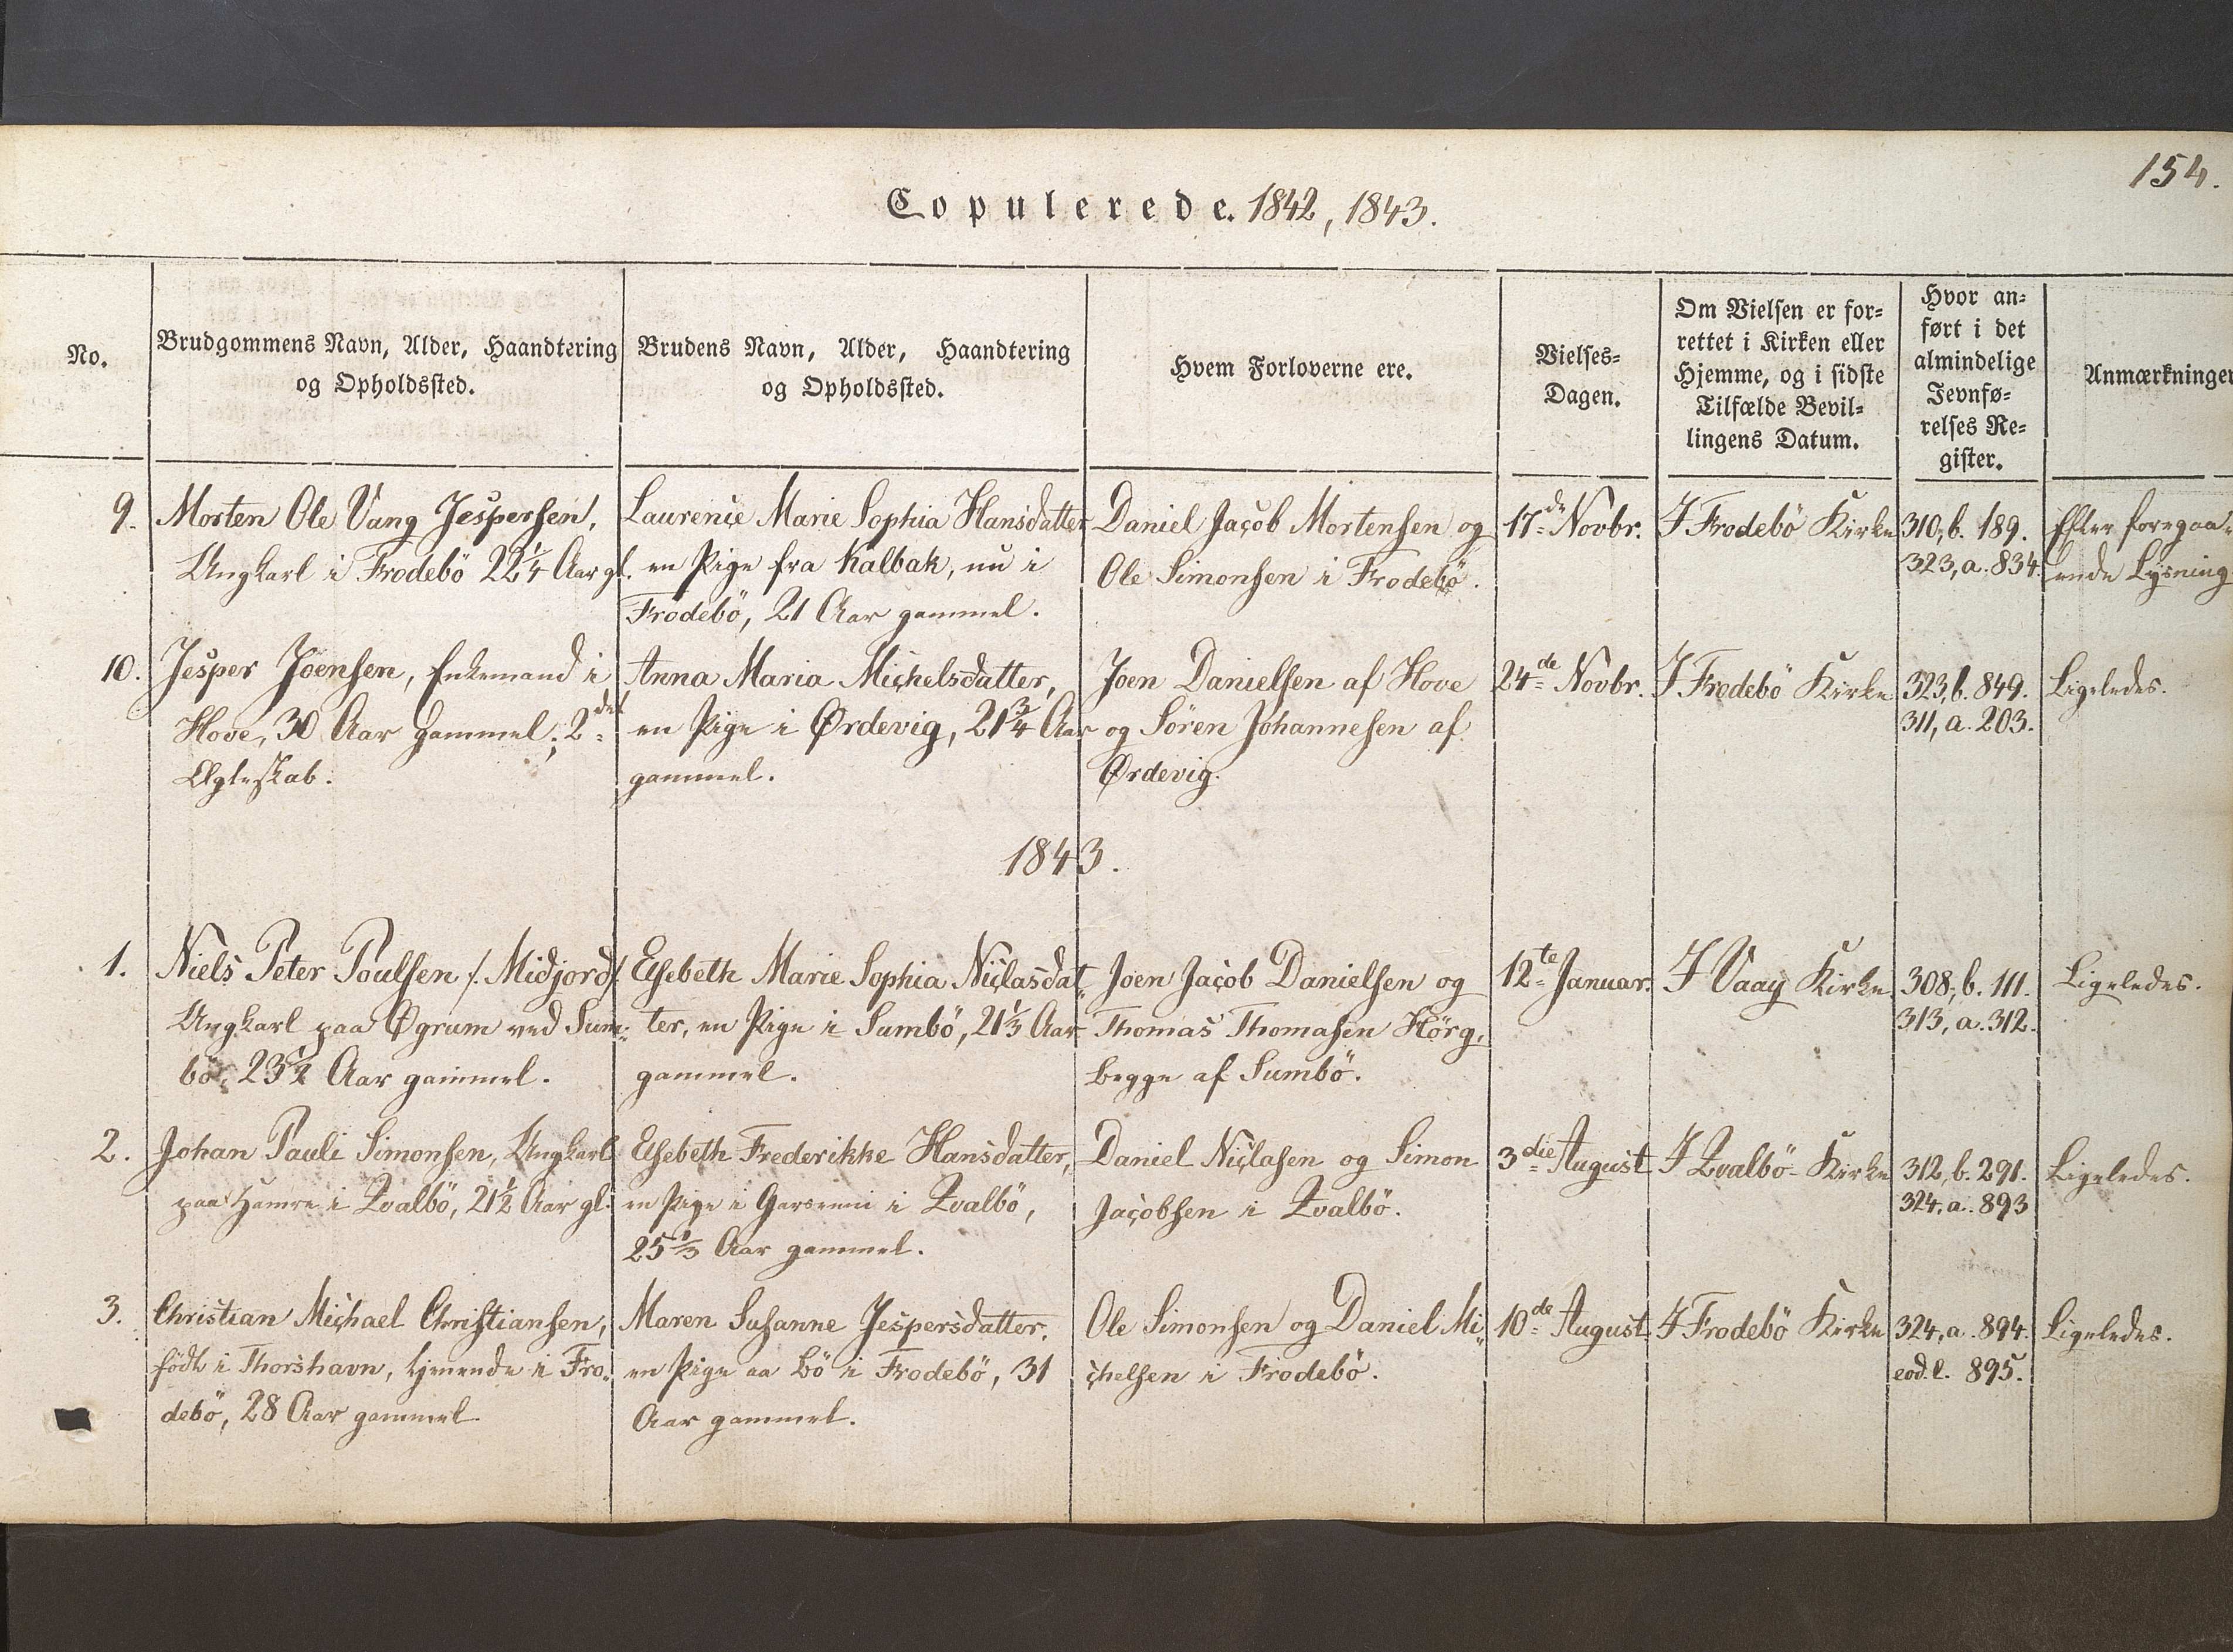 154.
Copulerede. 1842, 1843.
No.
Brudgommens Navn, Alder, Haandtering
og Opholdssted.
Brudens Navn, Alder, Haandtering
og Opholdssted.
Hvem Forloverne ere.
Vielses-
Dagen.
Om Vielsen er for-
rettet i Kirken eller
Hjemme, og i sidste
Tilfælde Bevil-
lingens Datum.
Hvor an-
ført i det
almindelige
Jevnfø-
relses Re-
gister.
Anmærkninger
9.
Morten Ole Vang Jespersen,
Ungkarl i Frodebö 22 1/4 Aar gl.
Laurence Marie Sophia Hansdatter
en Pige fra Kalbak, nu i
Frodebö, 21 Aar gammel.
Daniel Jacob Mortensen og
Ole Simonsen i Frodebö.
17de Novbr.
I Frodebö Kirke
310, b. 189.
323, a. 834.
Efter foregaa-
ende Lysning
10.
Jesper Joensen, Enkemand i
Hove, 30 Aar gammel; 2det
Ægteskab.
Anna Maria Michelsdatter,
en Pige i Ørdevig, 21 3/4 Aar
gammel.
Joen Danielsen af Hove
og Sören Johannesen af
Ørdevig.
24de Novbr.
I Frodebö Kirke
323, b. 849.
311, a. 203.
Ligeledes.
1843.
1.
Niels Peter Poulsen /: Midjord /:
Ungkarl paa Øgrum ved Sum-
bö, 23 1/2 Aar gammel.
Elsebeth Marie Sophia Niclasdat-
ter, en Pige i Sumbö, 21 1/3 Aar
gammel.
Joen Jacob Danielsen og
Thomas Thomasen Hörg,
begge af Sumbö.
12te Januar.
I Vaag Kirke
308, b. 111.
313, a. 312.
Ligeledes.
2.
Johan Pauli Simonsen, Ungkarl
paa Hamre i Qvalbö, 21 1/2 Aar gl.
Elsebeth Frederikke Hansdatter,
en Pige i i Qvalbö,
25 1/3 Aar gammel.
Daniel Niclasen og Simon
Jacobsen i Qvalbö.
3die August
I Qvalbö Kirke
312, b. 291.
324, a. 893
Ligeledes.
3.
Christian Michael Christiansen,
födt i Thorshavn, tjenende i Fro-
debö, 28 Aar gammel.
Maren Susanne Jespersdatter,
en Pige aa Bö i Frodebö, 31
Aar gammel.
Ole Simonsen og Daniel Mi-
chelsen i Frodebö.
10de August
I Frodebö Kirke
324, a. 894.
eod. l. 895.
Ligeledes.